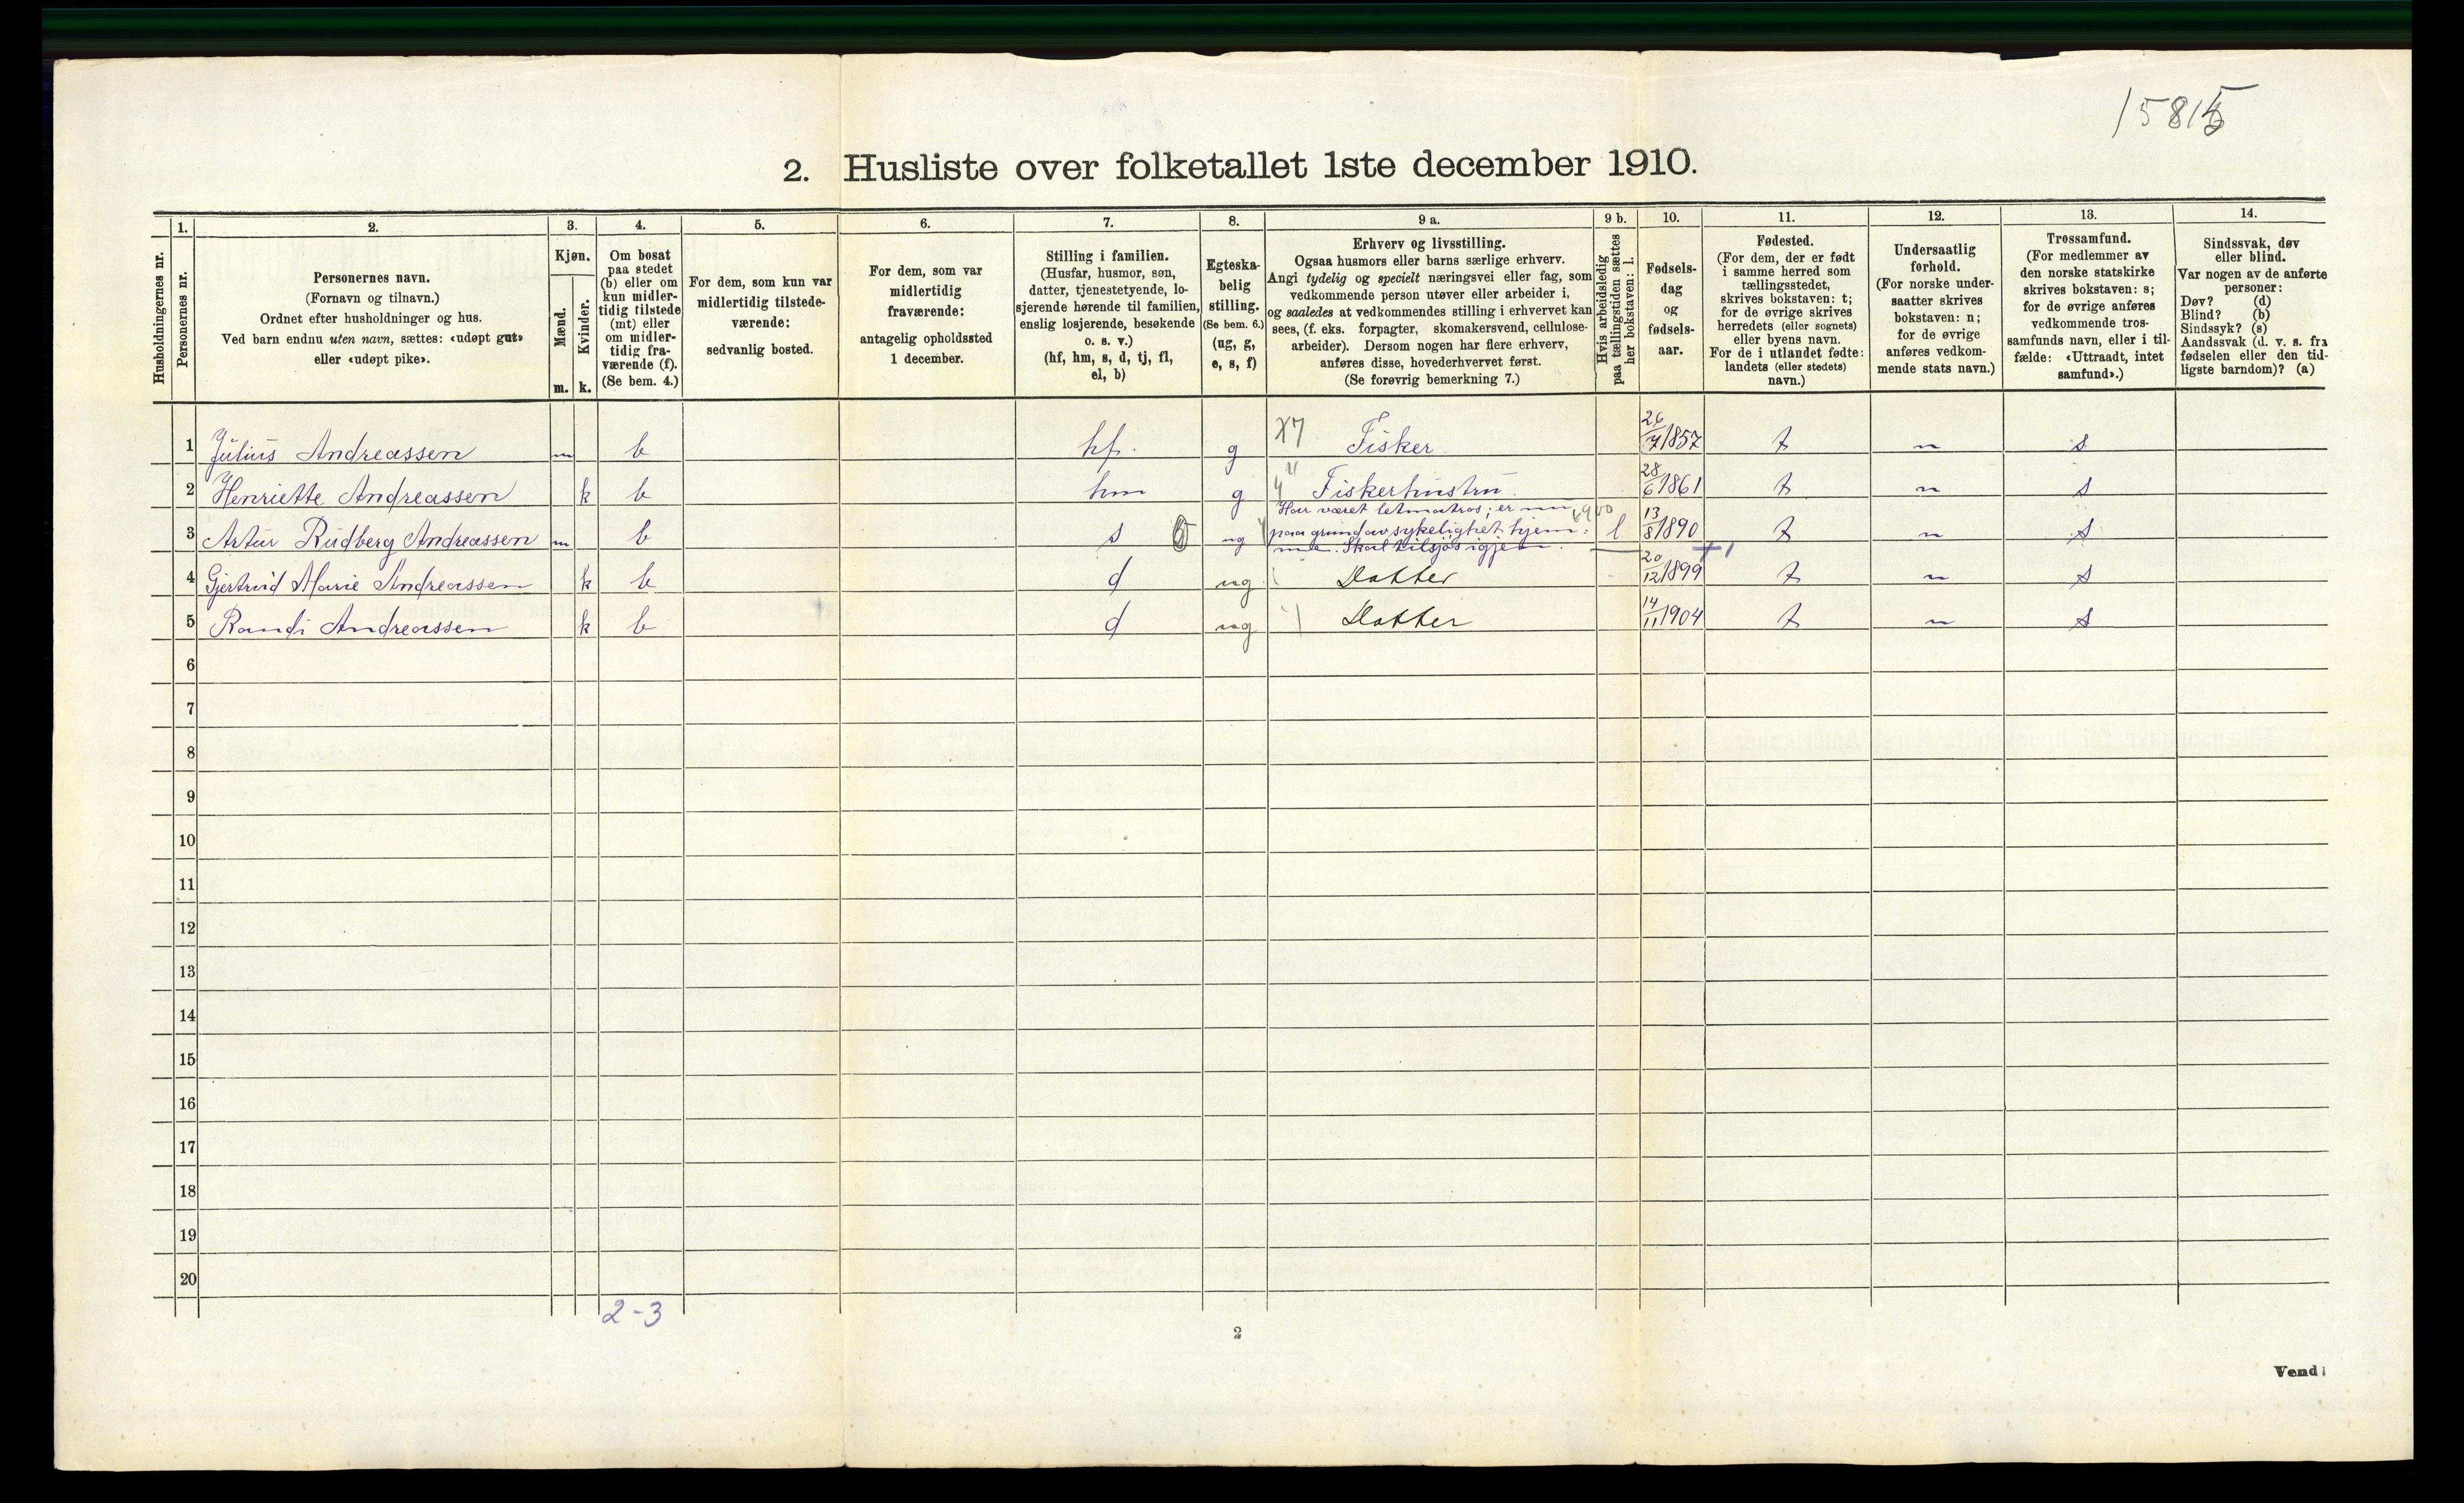 15815
2. Husliste over folketallet 1ste december 1910.
Husholdningernes nr.
1.
Personernes nr.
2.
Personernes navn.
(Fornavn og tilnavn.)
Ordnet efter husholdninger og hus.
Ved barn endnu uten navn, sættes: «udøpt gut»
eller «udøpt pike».
3.
Kjøn.
Mænd.
Kvinder.
m. k.
4.
Om bosat
paa stedet
(b) eller om
kun midler-
tidig tilstede
(mt) eller
om midler-
tidig fra-
værende (f).
(Se bem. 4.)
5.
For dem, som kun var
midlertidig tilstede-
værende:
sedvanlig bosted.
6.
For dem, som var
midlertidig
fraværende:
antagelig opholdssted
1 december.
7.
Stilling i familien.
(Husfar, husmor, søn,
datter, tjenestetyende, lo-
sjerende hørende til familien,
enslig losjerende, besøkende
o. s. v.)
(hf, hm, s, d, tj, fl,
el, b)
8.
Egteska-
belig
stilling.
(Se bem. 6.)
(ug, g,
e, s, f)
9 a.
Erhverv og livsstilling.
Ogsaa husmors eller barns særlige erhverv.
Angi tydelig og specielt næringsvei eller fag, som
vedkommende person utøver eller arbeider i,
og saaledes at vedkommendes stilling i erhvervet kan
sees, (f. eks. forpagter, skomakersvend, cellulose-
arbeider). Dersom nogen har flere erhverv,
anføres disse, hovederhvervet først.
(Se forøvrig bemerkning 7.)
9 b.
Hvis arbeidsledig
paa tællingstiden sættes
her bokstaven: l.
10.
Fødsels-
dag
og
fødsels-
aar.
11.
Fødested.
(For dem, der er født
i samme herred som
tællingsstedet,
skrives bokstaven: t;
for de øvrige skrives
herredets (eller sognets)
eller byens navn.
For de i utlandet fødte:
landets (eller stedets)
navn.)
12.
Undersaatlig
forhold.
(For norske under-
saatter skrives
bokstaven: n;
for de øvrige
anføres vedkom-
mende stats navn.)
13.
Trossamfund.
(For medlemmer av
den norske statskirke
skrives bokstaven: s;
for de øvrige anføres
vedkommende tros-
samfunds navn, eller i til-
fælde: «Uttraadt, intet
samfund».)
14.
Sindssvak, døv
eller blind.
Var nogen av de anførte
personer:
Døv? (d)
Blind? (b)
Sindssyk? (s)
Aandssvak (d. v. s. fra
fødselen eller den tid-
ligste barndom)? (a)
1 Julius Andreassen m b hf. g X7 Fisker 26/7 1857 t n s
2 Henriette Andreassen k b hm g Fiskerhustru. 28/6 1861 t n s
3 Artur Rudberg Andreassen m b s ug Har været letmatros; er nu
paa grund av sykelighet hjem:
me. Skal tilsjøs igjen. l 13/8 1890 t n s
4 Gjertrud Marie Andreassen k b d ug Datter 20/12 1899 t n s
5 Randi Andreassen k b d ug Datter 14/11 1904 t n s
6
7
8
9
10
11
12
13
14
15
16
17
18
19
20
2-3
2
Vend